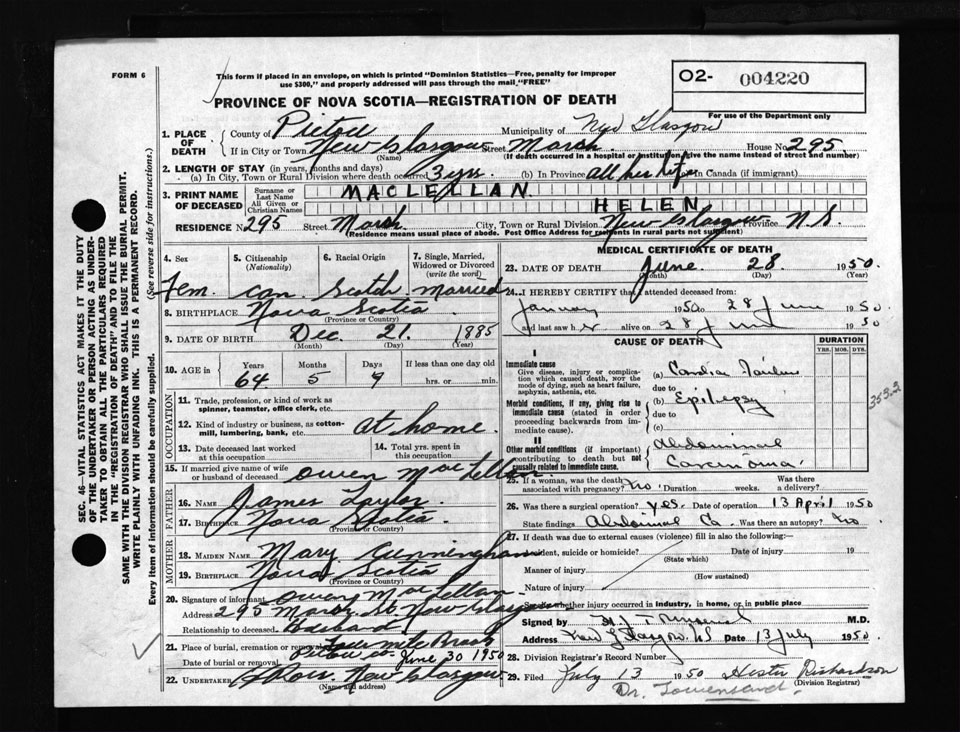 FORM 6
This form if placed in an envelope, on which is printed "Dominion Statistics—Free, penalty for improper
use $300," and properly addressed will pass through the mail, "FREE"
O2- 004220
For use of the Department only
PROVINCE OF NOVA SCOTIA—REGISTRATION OF DEATH
1. PLACE OF DEATH County of Pictou Municipality of New Glasgow
If in City or Town New Glasgow Street Marsh House No. 295
(Name) (If death occurred in a hospital or institution give the name instead of street and number)
2. LENGTH OF STAY (in years, months and days)
(a) In City, Town or Rural Division where death occurred 3 yrs. (b) In Province all her life in Canada (if immigrant)
3. PRINT NAME OF DECEASED Surname or Last Name MACLELLAN
All Given or Christian Names HELEN
RESIDENCE No 295 Street Marsh City, Town or Rural Division New Glasgow Province N.S
(Residence means usual place of abode. Post Office Address for residents in rural parts not sufficient)
4. Sex 5. Citizenship (Nationality) 6. Racial Origin 7. Single, Married, Widowed or Divorced (write the word)
Fem. can. Scotch married
8. BIRTHPLACE Nova Scotia
(Province or Country)
9. DATE OF BIRTH Dec. 21. 1885
(Month) (Day) (Year)
10. AGE in Years Months Days If less than one day old
64 5 9 hrs. or min.
OCCUPATION
11. Trade, profession, or kind of work as spinner, teamster, office clerk, etc.
12. Kind of industry or business, as cotton-mill, lumbering, bank, etc. at home.
13. Date deceased last worked at this occupation 14. Total yrs. spent in this occupation
15. If married give name of wife or husband of deceased Owen MacLellan
FATHER
16. Name James Taylor
17. Birthplace Nova Scotia
(Province or Country)
MOTHER
18. Maiden Name Mary Cunningham
19. Birthplace Nova Scotia
(Province or Country)
20. Signature of informant Owen MacLellan
Address 295 Marsh St New Glasgow
Relationship to deceased Husband
21. Place of burial, cremation or removal mile Brook
Pictou co.
Date of burial or removal June 30 1950
22. UNDERTAKER New Glasgow
(Name and address)
MEDICAL CERTIFICATE OF DEATH
23. DATE OF DEATH June 28 1950
(Month) (Day)
24. I HEREBY CERTIFY that I attended deceased from:
January 1950 to 28 June 1950
and last saw her alive on 28 June 1950
CAUSE OF DEATH DURATION
YRS. MOS. DYS.
I
Immediate cause
Give disease, injury or complication which caused death, not the mode of dying, such as heart failure, asphyxia, asthenia, etc.
(a) Cardiac Failure
due to
Morbid conditions, if any, giving rise to immediate cause (stated in order proceeding backwards from immediate).
(b) Epilepsy
due to
(c)
353.3
II
Other morbid conditions (if important) contributing to death but not causally related to immediate cause.
Abdominal
Carcinoma
25. If a woman, was the death associated with pregnancy? No Duration weeks. Was there a delivery?
26. Was there a surgical operation? yes. Date of operation 13 April 1950
State findings Abdominal Ca. Was there an autopsy? No
27. If death was due to external causes (violence) fill in also the following:
Accident, suicide or homicide? Date of injury 19
(State which)
Manner of injury
(How sustained)
Nature of injury
Specify whether injury occurred in industry, in home, or in public place
Signed by M.D.
Address New Glasgow, NS Date 13 July 1950.
28. Division Registrar's Record Number
29. Filed July 13 1950 Hester Richardson
(Division Registrar)
Dr. Townsend.
SEC. 46—VITAL STATISTICS ACT MAKES IT THE DUTY
OF THE UNDERTAKER OR PERSON ACTING AS UNDER-
TAKER TO OBTAIN ALL THE PARTICULARS REQUIRED
IN THE "REGISTRATION OF DEATH" AND TO FILE THE
SAME WITH THE DIVISION REGISTRAR WHO SHALL ISSUE THE BURIAL PERMIT.
WRITE PLAINLY WITH UNFADING INK. THIS IS A PERMANENT RECORD.
Every item of information should be carefully supplied. (See reverse side for instructions.)